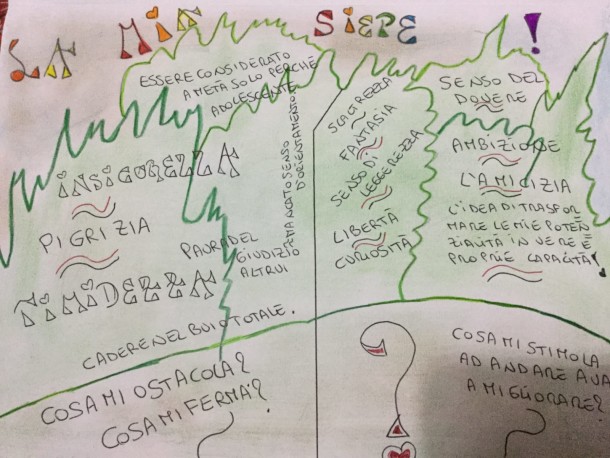 LA MIA SIEPE !
ESSERE CONSIDERATO
A METÀ SOLO PERCHÈ
ADOLESCENTE
INSICUREZZA
PIGRIZIA
TIMIDEZZA
PAURA DEL
GIUDIZIO
ALTRUI
MANCATO SENSO
D'ORIENTAMENTO
CADERE NEL BUIO TOTALE.
COSA MI OSTACOLA?
COSA MI FERMA?
SCALTREZZA
FANTASIA
SENSO DI
LEGGEREZZA
LIBERTÀ
CURIOSITÀ
SENSO DEL
DOVERE
AMBIZIONE
L'AMICIZIA
L'IDEA DI TRASFOR
MARE LE MIE POTEN
ZIALITÀ IN VERE E
PROPRIE CAPACITÀ!
COSA MI STIMOLA
AD ANDARE AVA
A MIGLIORARE?
?